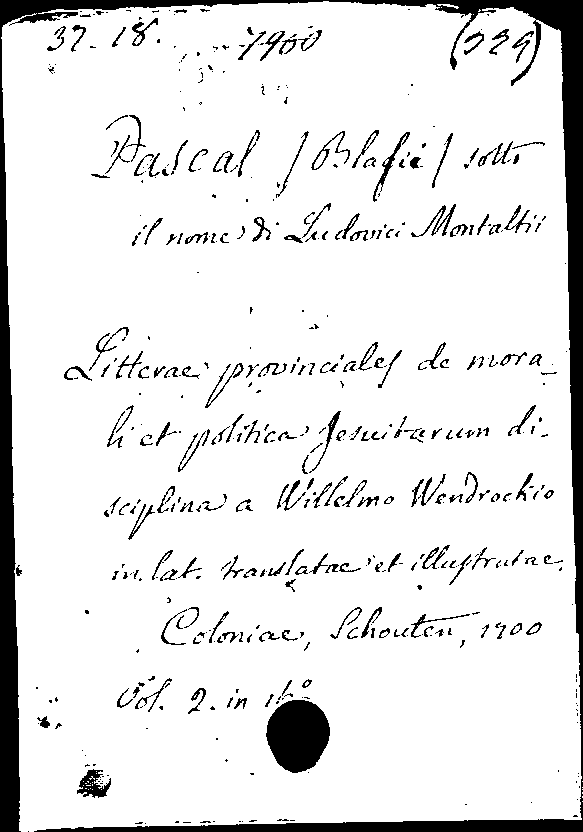 37-18. 7900 (339)
Pascal /Blasii/ sotto
il nome di Ludovici Montaltii
Litterae provinciales de mora-
li et politica Jesuitarum di-
sciplina a Willelmo Wendrockio
in lat. translatae et illustratae.
Coloniae, Schouten, 1700
Vol. 2. in 16°